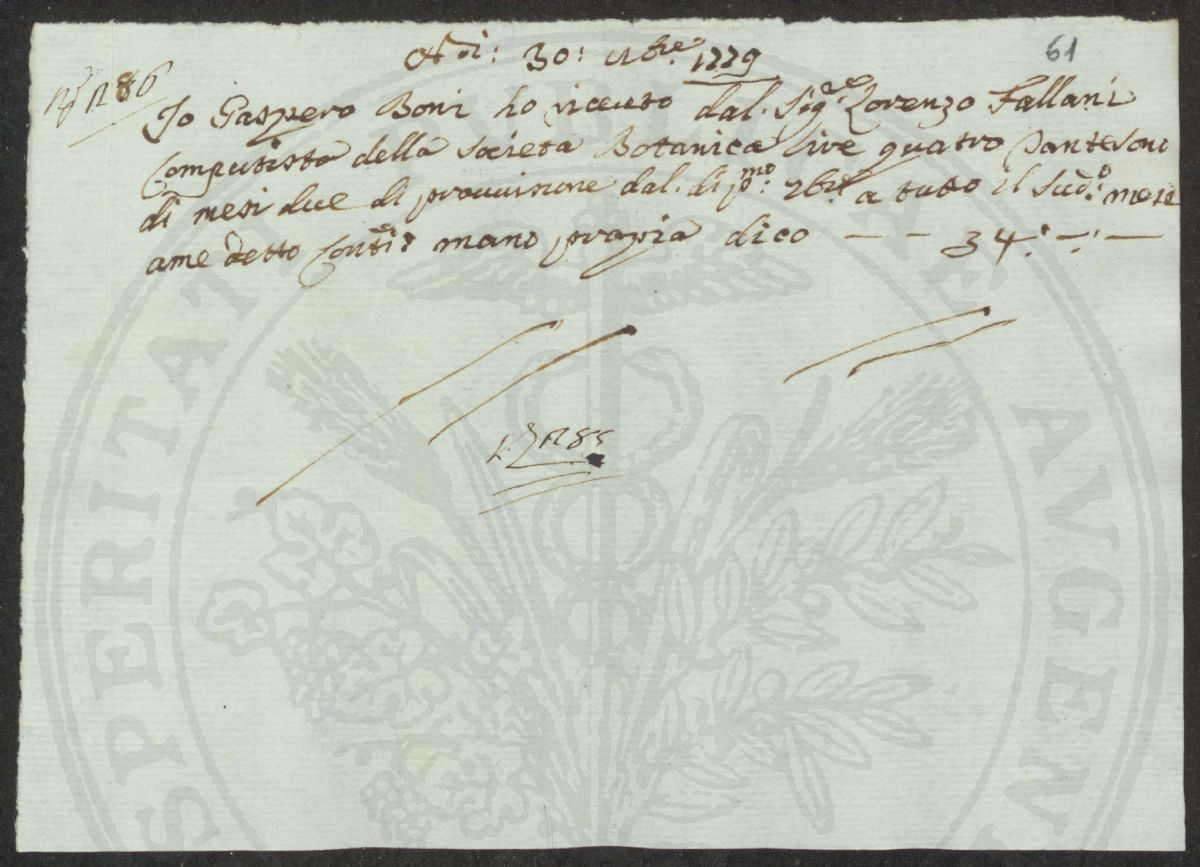 Adì: 30: Xbre: 1779
61
N° 186
Io Gaspero Boni ho riceuto dal. Sigre Lorenzo Fallani
Computista della Societa Botanica lire quatro
di mesi due di prouuisione dal. di pmo: a tutto il Sudo: mese
ame detto Conti: mano propia dico — — 34.—.—
185
PUBLICAE
SPERITATI
AVGEN